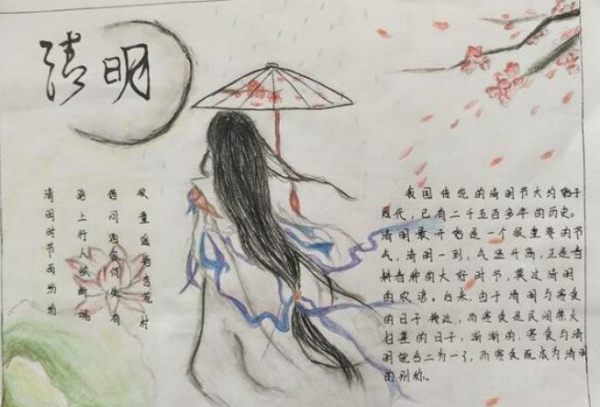 清明
清明时节雨纷纷
路上行人欲断魂
借问酒家何处有
牧童遥指杏花村
我国传统的清明节大约始于
周代，已有二千五百多年的历史。
清明最开始是一个很重要的节
气，清明一到，气温升高，正是春
耕春种的大好时节，莫过清明
的农谚，后来，由于清明与寒食
的日子接近，而寒食是民间禁火
扫墓的日子，渐渐的，寒食与清
明就合二为一了，而寒食既成为清明
的别称。